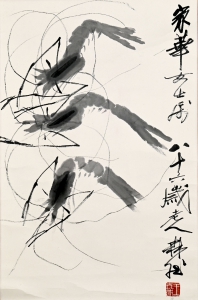 家華女士屬 八十六歲老人